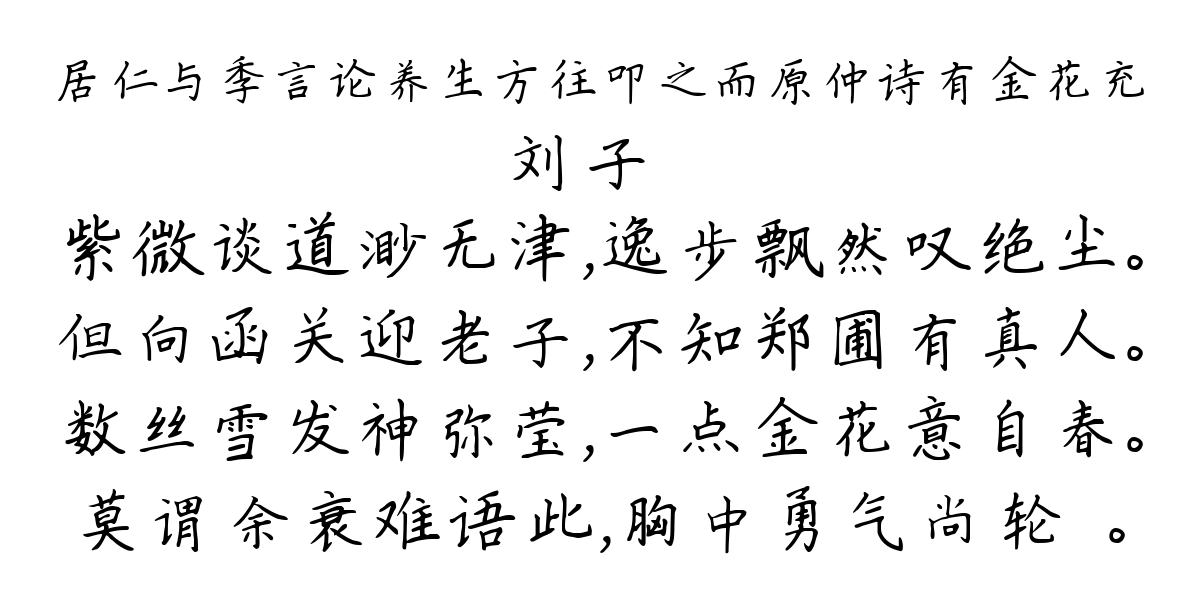 居仁与季言论养生方往叩之而原仲诗有金花充
刘子
紫微谈道渺无津,逸步飘然叹绝尘。
但向函关迎老子,不知郑圃有真人。
数丝雪发神弥莹,一点金花意自春。
莫谓余衰难语此,胸中勇气尚轮 。